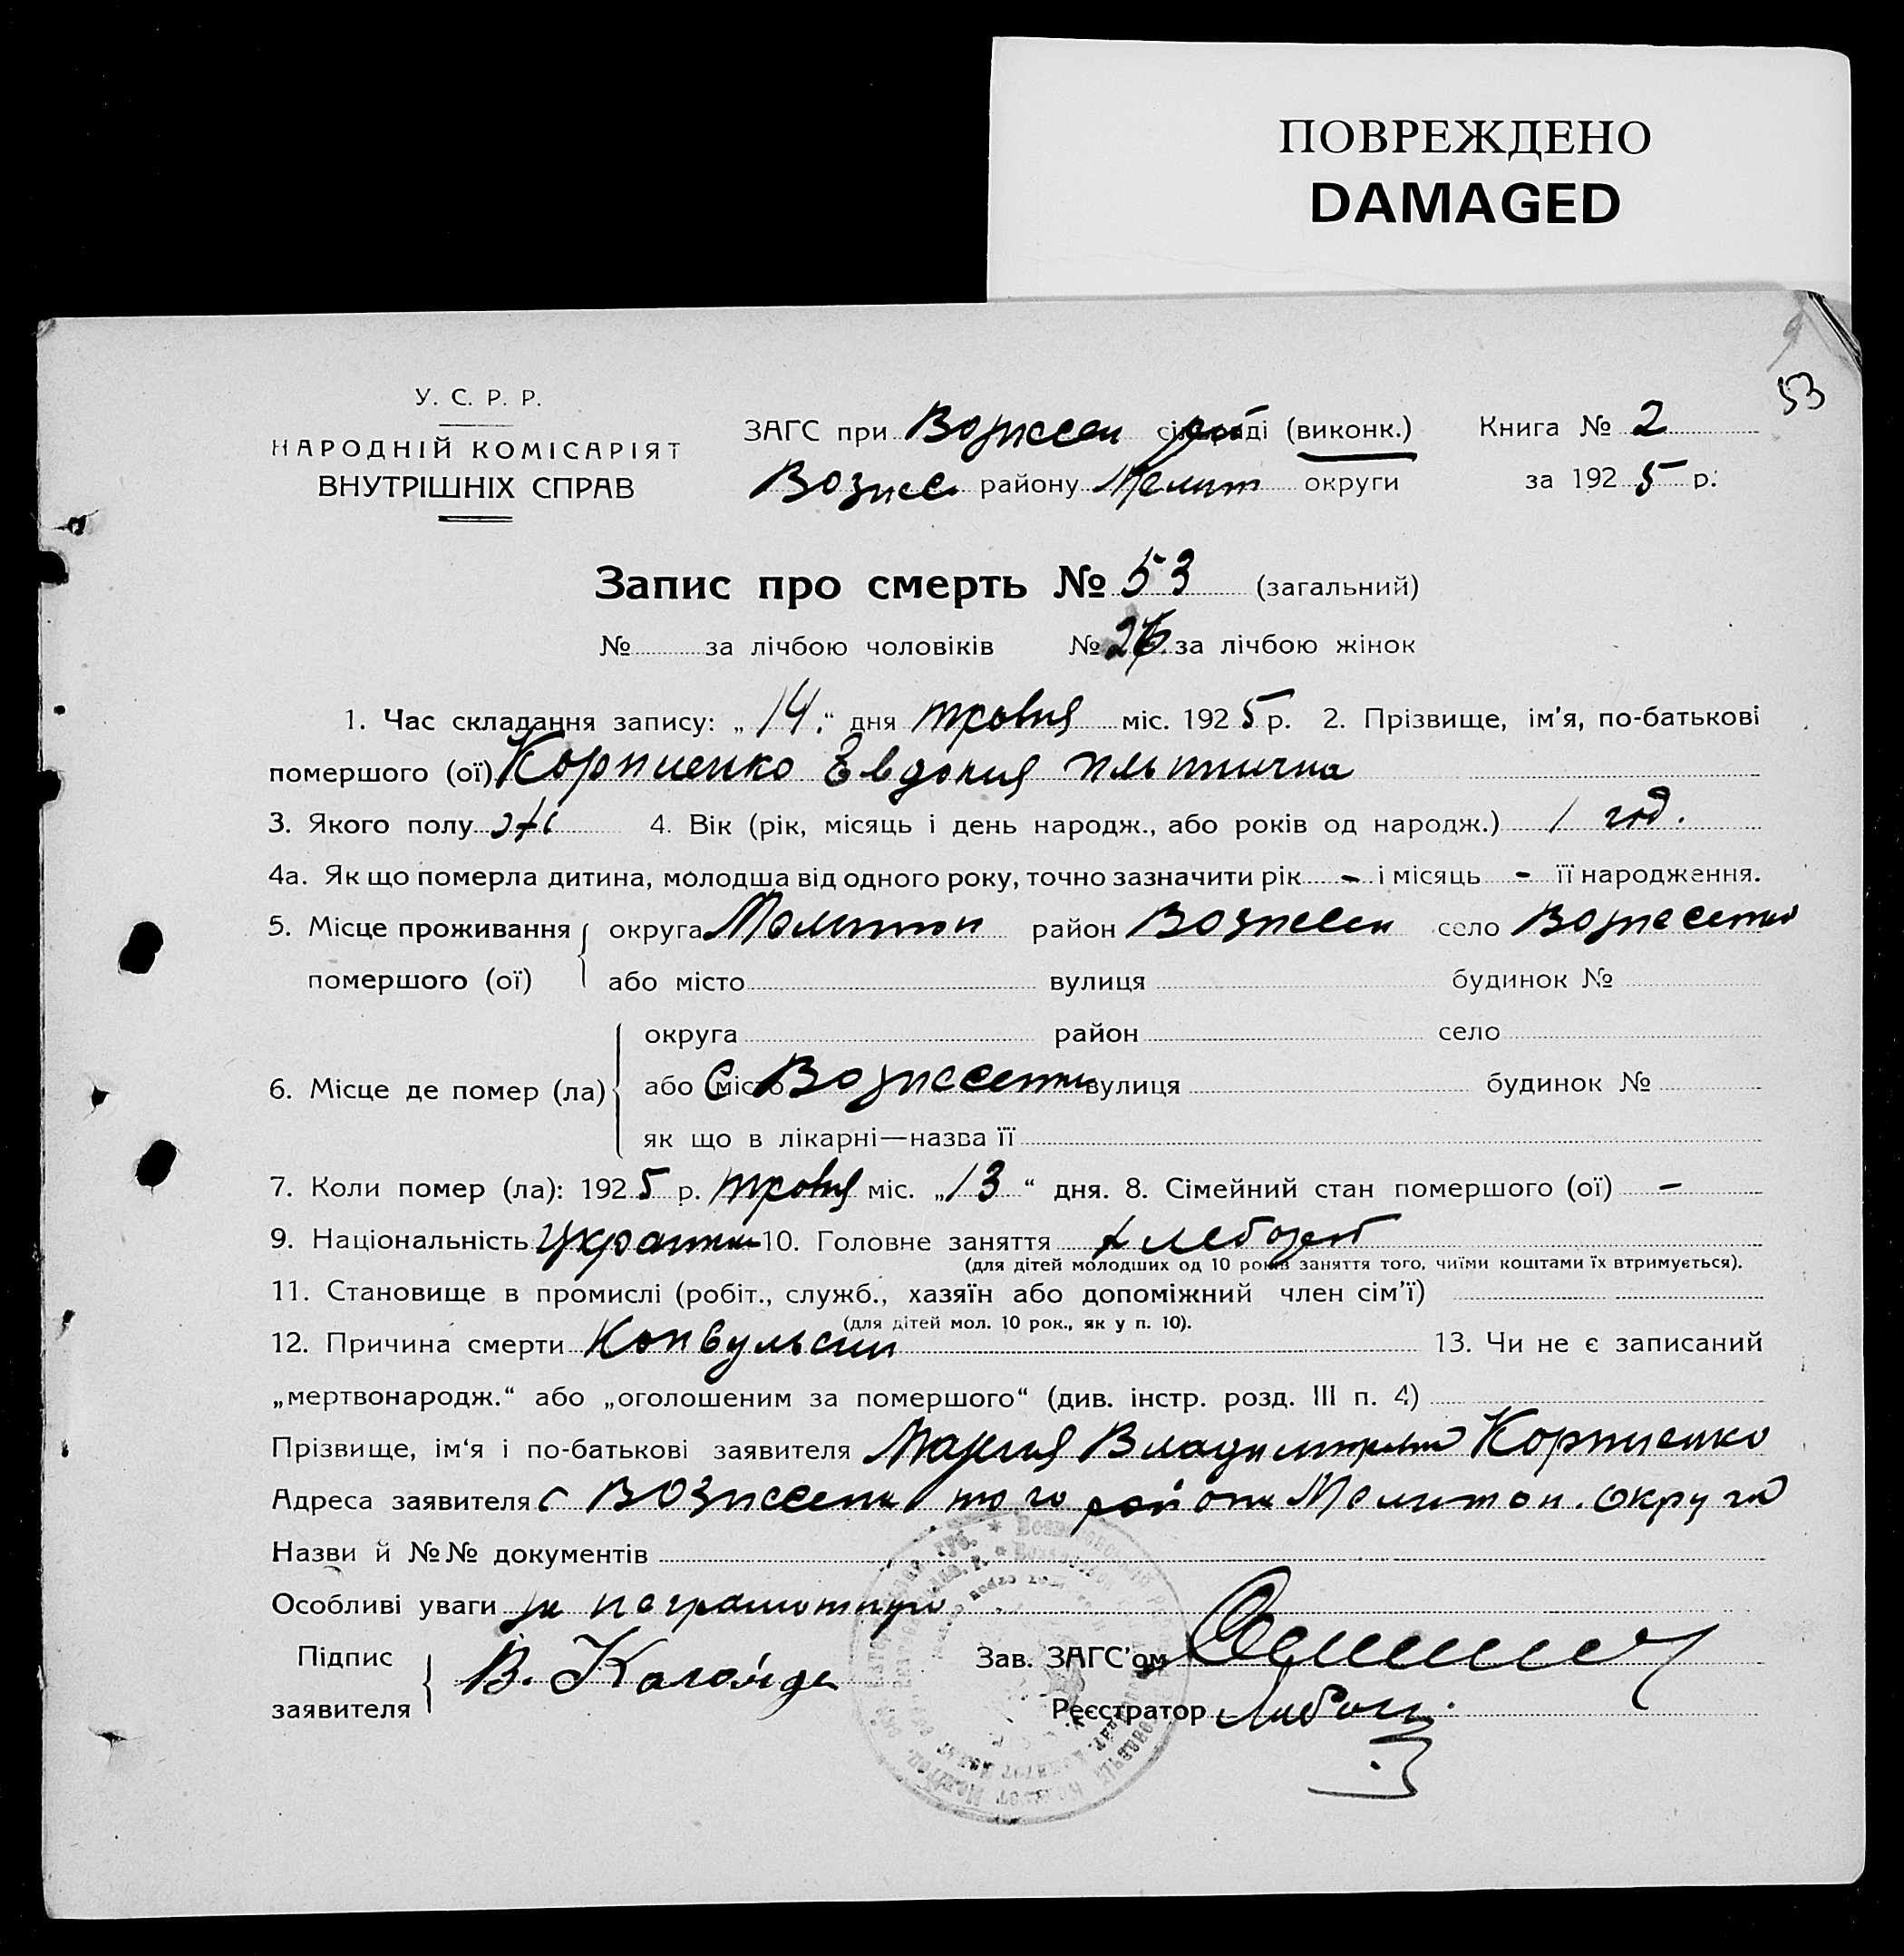 ПОВРЕЖДЕНО
DAMAGED
53
У. С. Р. Р.
НАРОДНІЙ КОМІСАРІЯТ
ВНУТРІШНІХ СПРАВ
ЗАГС при Вознесен сільраді (виконк.) Книга № 2
Вознес району Мелит округи за 1925 р.
Запис про смерть № 53 (загальний)
№ за лічбою чоловіків № за лічбою жінок
1. Час складання запису: „14“ дня травня міс. 1925 р. 2. Прізвище, ім'я, по-батькові
помершого (ої) Корниенко Евдокия
3. Якого полу 4. Вік (рік, місяць і день народж., або років од народж.) 1 год.
4а. Як що померла дитина, молодша від одного року, точно зазначити рік - і місяць - її народження.
5. Місце проживання помершого (ої) округа Мелитоп район Вознесен село Вознесенка
або місто вулиця будинок №
округа район село
6. Місце де помер (ла) або місто с Вознесенка вулиця будинок №
як що в лікарні—назва її
7. Коли помер (ла): 1925 р. травня міс. „13“ дня. 8. Сімейний стан помершого (ої) -
9. Національність Украинка 10. Головне заняття хлебороб
(для дітей молодших од 10 років заняття того, чиїми коштами їх втримується).
11. Становище в промислі (робіт., служб., хазяїн або допоміжний член сім'ї)
(для дітей мол. 10 рок., як у п. 10).
12. Причина смерти Конвульсии 13. Чи не є записаний
„мертвонародж.“ або „оголошеним за помершого“ (див. інстр. розд. III п. 4)
Прізвище, ім'я і по-батькові заявителя Мария Владимировна Корниенко
Адреса заявителя с Вознесенка того района Мелитоп. округа
Назви й №№ документів
Особливі уваги за неграмотную
Підпис заявителя В.
Зав. ЗАГС'ом
Реєстратор